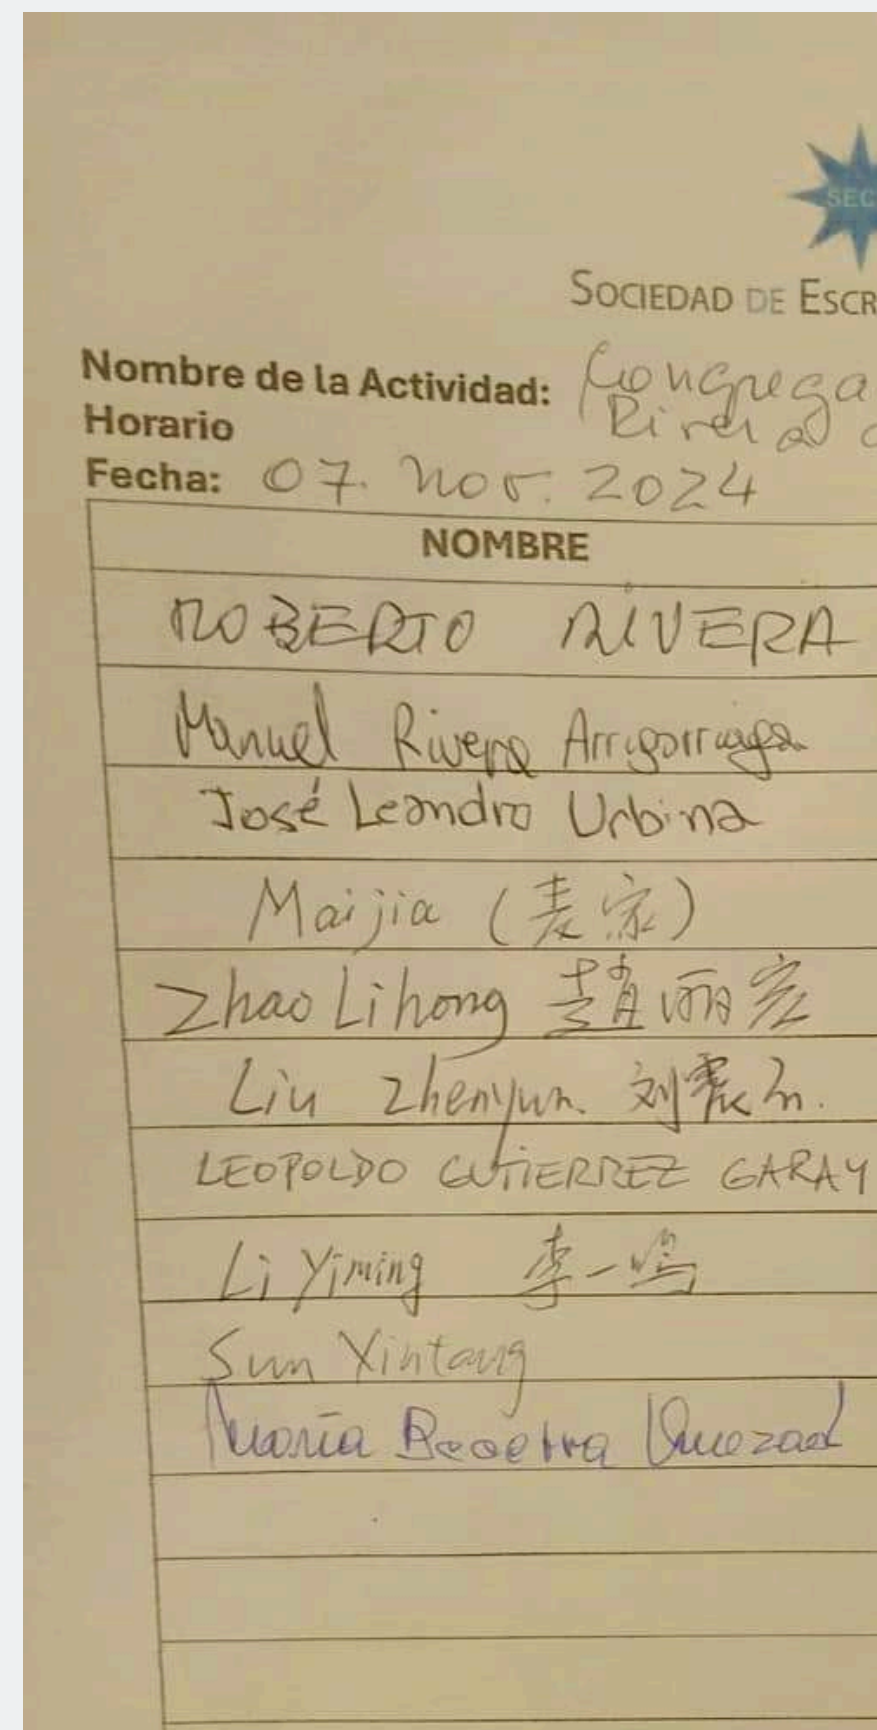 SEC
SOCIEDAD DE ESCR
Nombre de la Actividad: Congrega
Horario
Fecha: 07. Nov. 2024
NOMBRE
ROBERTO RIVERA
Manuel Rivera Arrigorriaga
José Leandro Urbina
Maijia (麦家)
Zhao Lihong 趙丽宏
Liu Zhenyun. 刘震云.
LEOPOLDO GUTIERREZ GARAY
Li Yiming 李一鸣
Sun Xintang
María Becerra